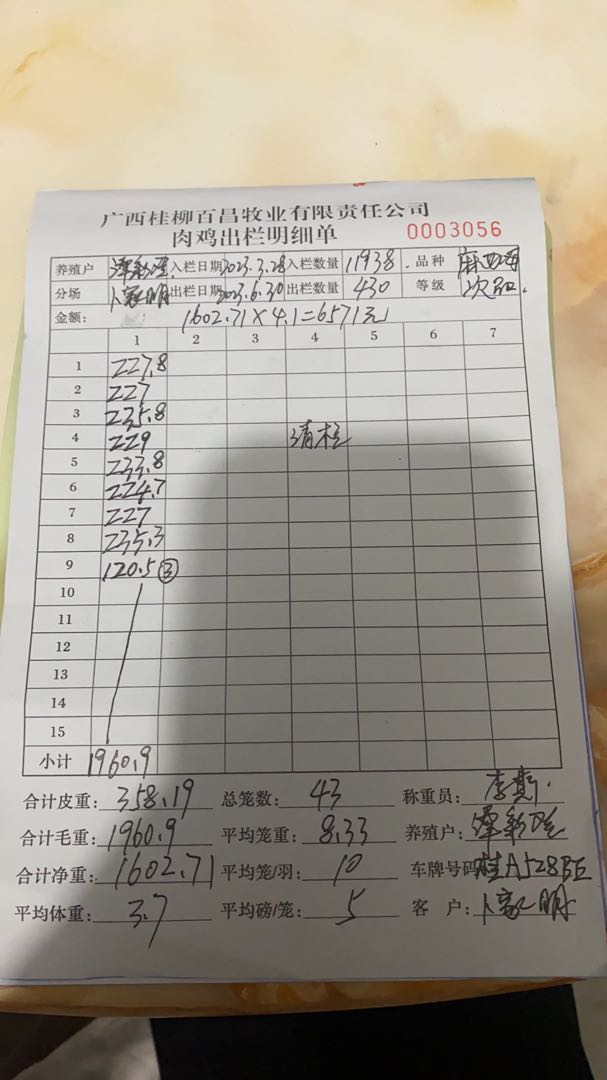 广西桂柳百昌牧业有限责任公司
肉鸡出栏明细单 0003056
养殖户 入栏日期 2023.3.28 入栏数量 11938. 品种
分场 卜家明 出栏日期 2023.6.30 出栏数量 430 等级 次品.
金额: 1602.71×4.1=6571元
1 2 3 4 5 6 7
1 227.8
2 227
3 235.8
4 229 清栏
5 233.8
6 224.7
7 227
8 235.3
9 120.5 ③
10
11
12
13
14
15
小计 1960.9
合计皮重: 358.19 总笼数: 43 称重员: 李斯.
合计毛重: 1960.9 平均笼重: 8.33 养殖户:
合计净重: 1602.71 平均笼/羽: 10 车牌号码 桂A528BE
平均体重: 3.7 平均磅/笼: 5 客户: 卜家明